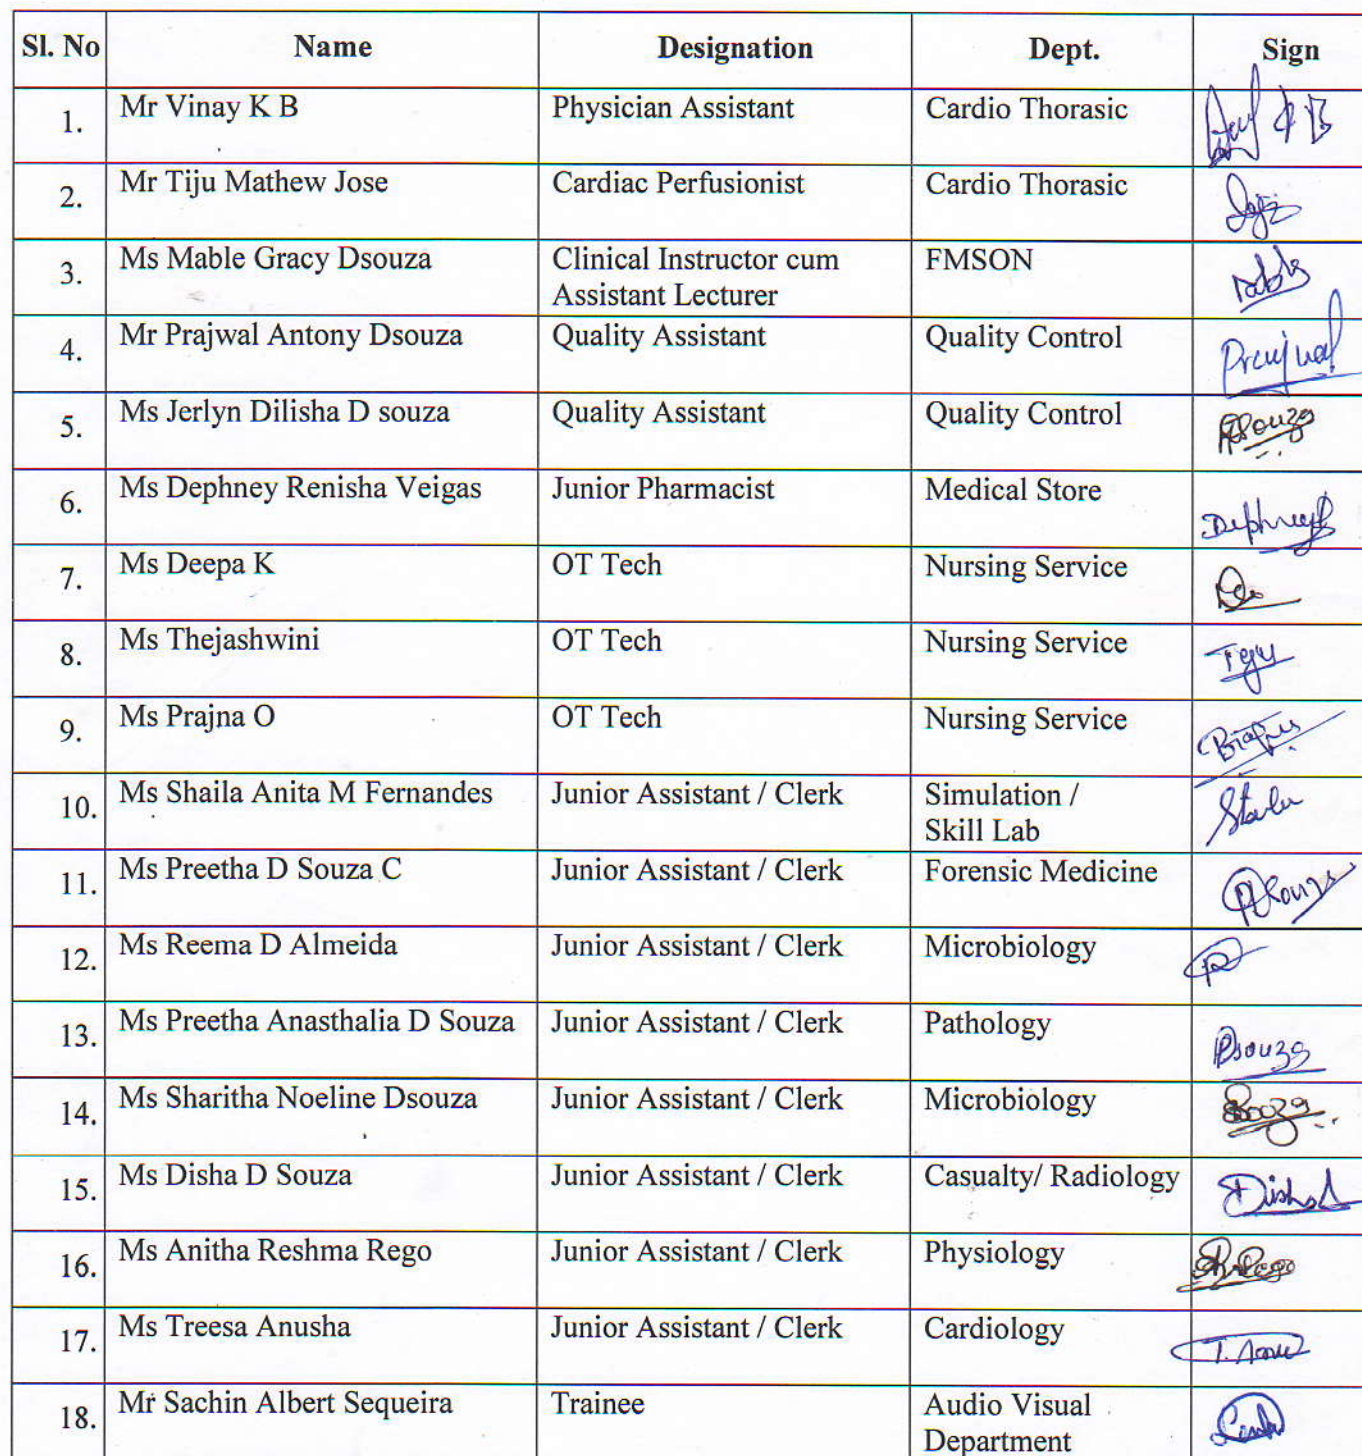 Sl. No Name Designation Dept. Sign
1. Mr Vinay K B Physician Assistant Cardio Thorasic
2. Mr Tiju Mathew Jose Cardiac Perfusionist Cardio Thorasic
3. Ms Mable Gracy Dsouza Clinical Instructor cum FMSON
Assistant Lecturer
4. Mr Prajwal Antony Dsouza Quality Assistant Quality Control Prajwal
5. Ms Jerlyn Dilisha D souza Quality Assistant Quality Control
6. Ms Dephney Renisha Veigas Junior Pharmacist Medical Store
7. Ms Deepa K OT Tech Nursing Service
8. Ms Thejashwini OT Tech Nursing Service
9. Ms Prajna O OT Tech Nursing Service
10. Ms Shaila Anita M Fernandes Junior Assistant / Clerk Simulation /
Skill Lab
11. Ms Preetha D Souza C Junior Assistant / Clerk Forensic Medicine
12. Ms Reema D Almeida Junior Assistant / Clerk Microbiology
13. Ms Preetha Anasthalia D Souza Junior Assistant / Clerk Pathology
14. Ms Sharitha Noeline Dsouza Junior Assistant / Clerk Microbiology
15. Ms Disha D Souza Junior Assistant / Clerk Casualty/ Radiology
16. Ms Anitha Reshma Rego Junior Assistant / Clerk Physiology
17. Ms Treesa Anusha Junior Assistant / Clerk Cardiology
18. Mr Sachin Albert Sequeira Trainee Audio Visual
Department